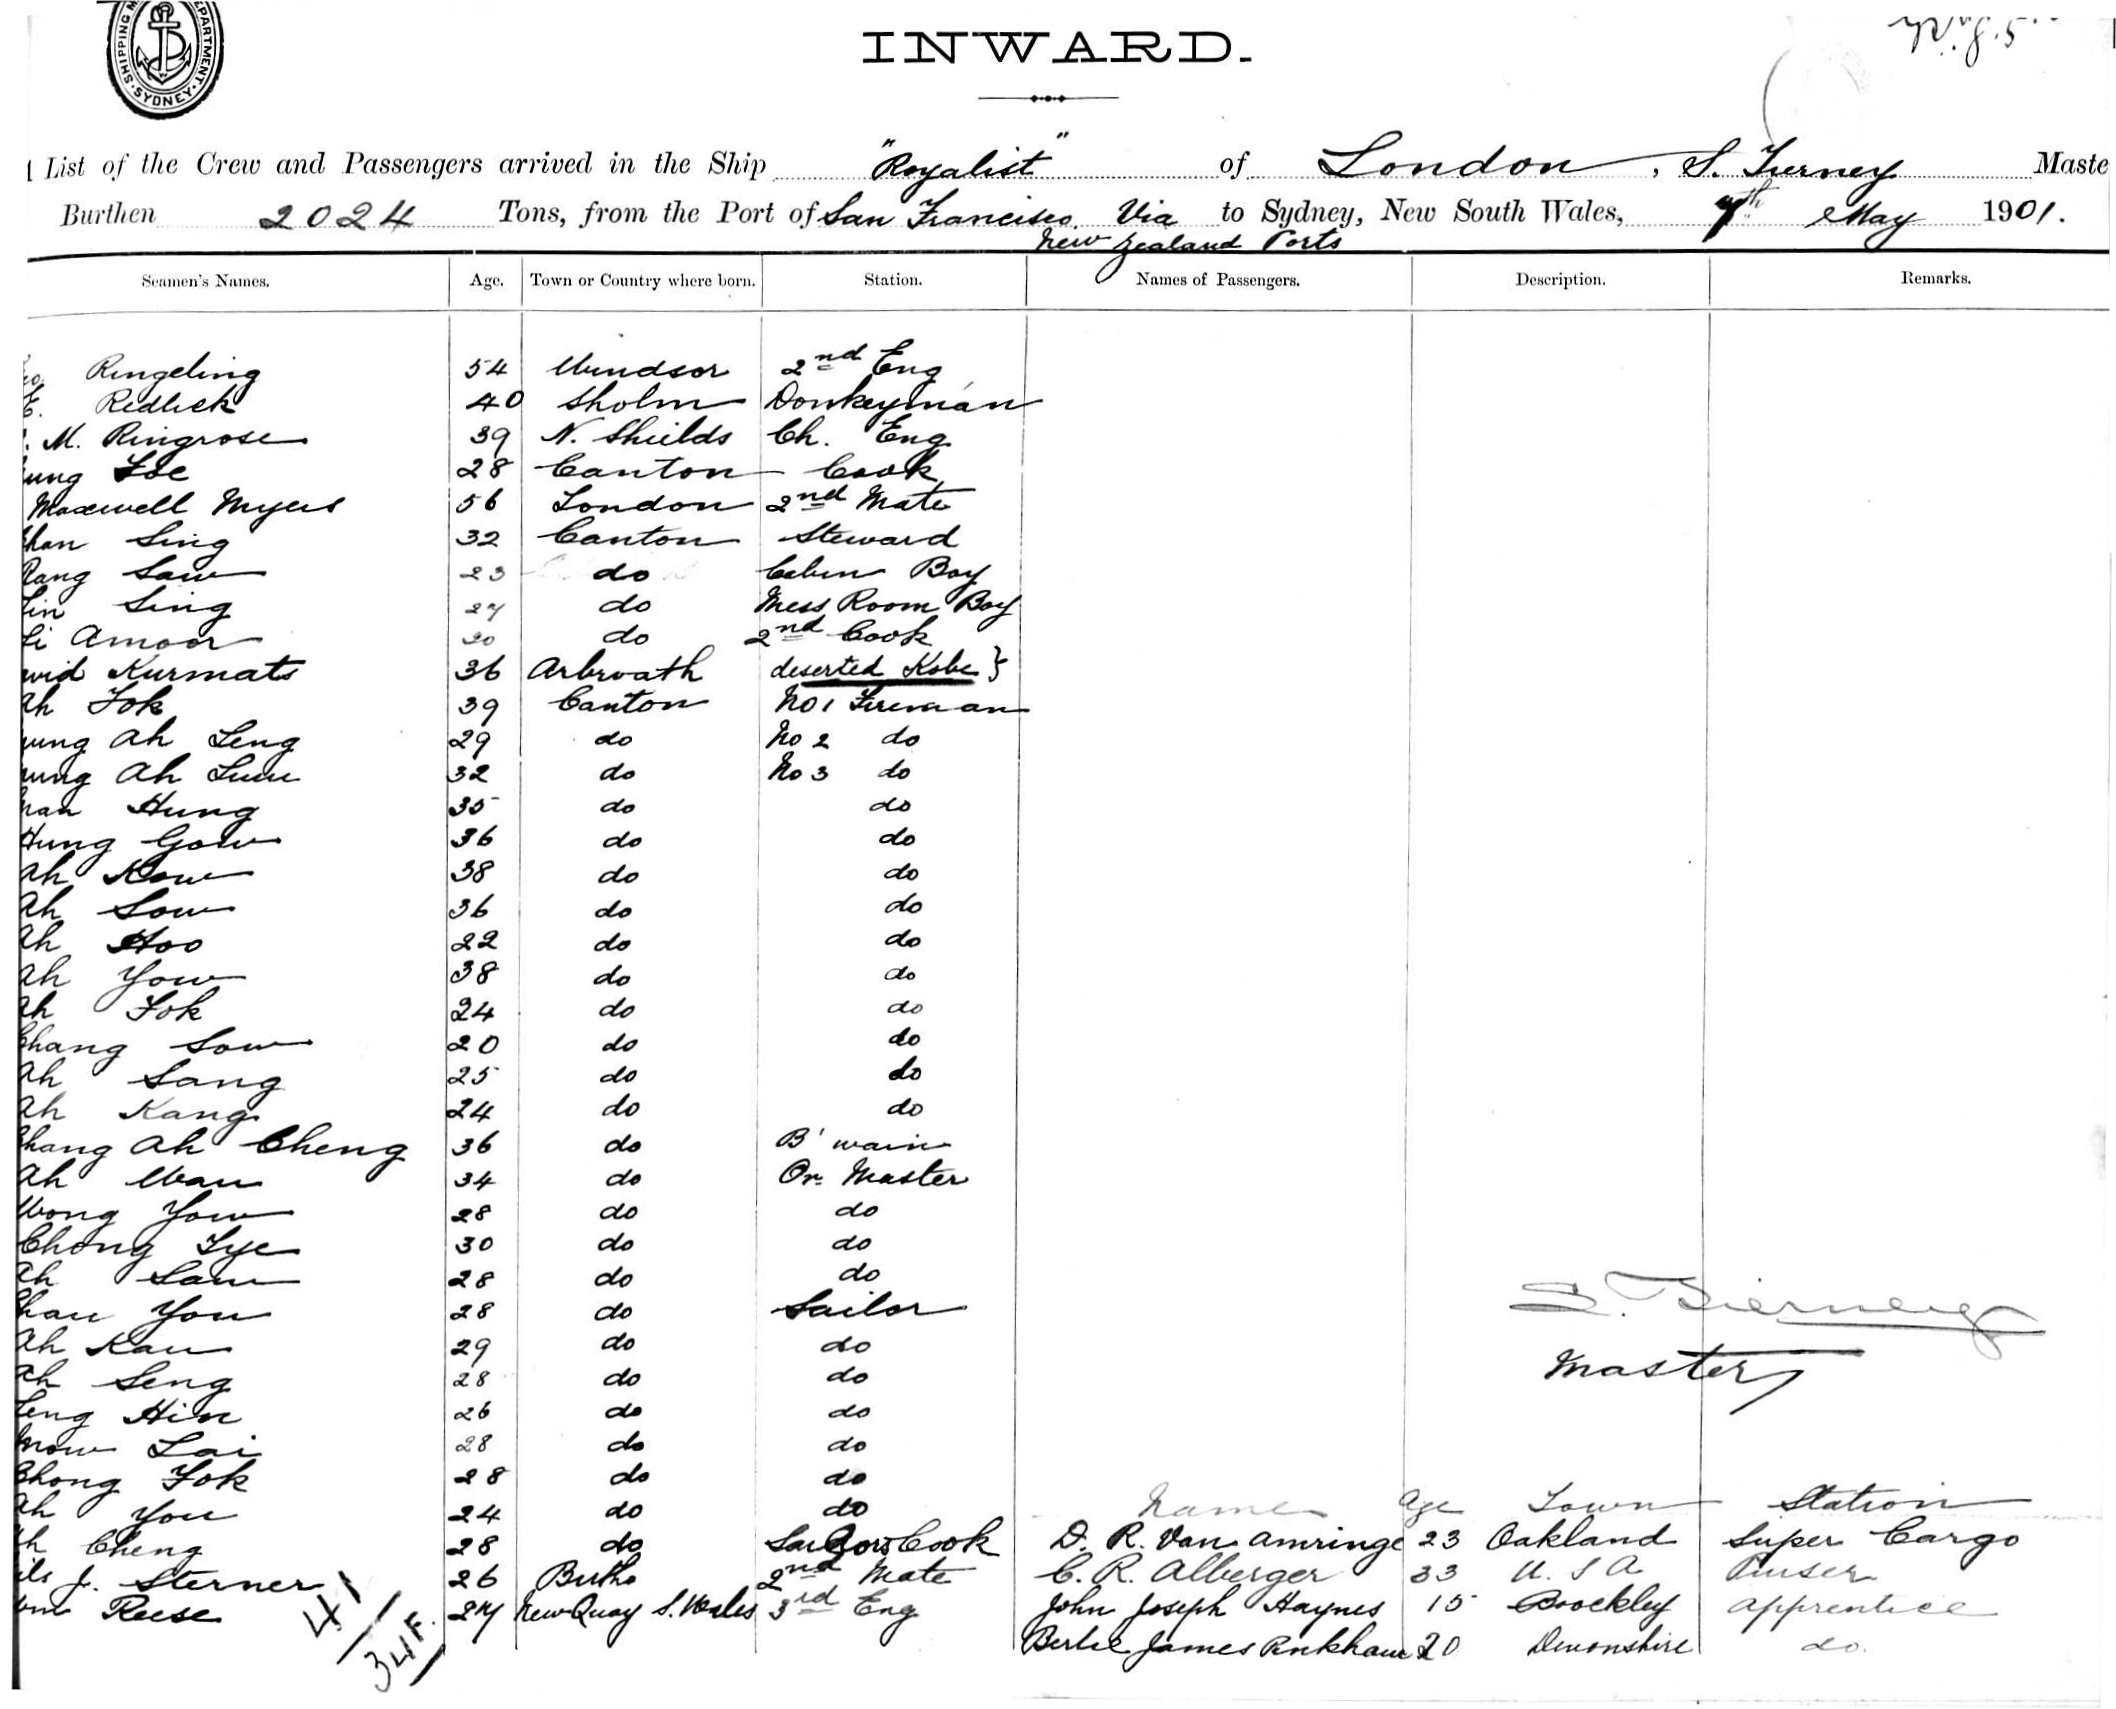 SHIPPING DEPARTMENT SYDNEY
INWARD.
List of the Crew and Passengers arrived in the Ship "Royalist" of London, S. Tierney Maste
Burthen 2024 Tons, from the Port of San Francisco Via to Sydney, New South Wales, 7th May 1901.
New Zealand Ports
Seamen's Names. Age. Town or Country where born. Station. Names of Passengers. Description. Remarks.
Ringeling 54 Windsor 2nd Eng
E. Redlick 40 Sholm Donkeyman
M. Ringrose 39 N. Shields Ch. Eng
ung Foe 28 Canton Cook
Maxwell Myers 56 London 2nd Mate
han Sing 32 Canton Steward
ang Saw 23 do Cabin Boy
in Sing 27 do Mess Room Boy
i Amoor 30 do 2nd Cook
vid Kurmats 36 Arbroath deserted Kobe }
Ah Fok 39 Canton No 1 Fireman
ung Ah Leng 29 do No 2 do
ung Ah Lum 32 do No 3 do
han Hung 35 do do
Hung Gow 36 do do
Ah Kow 38 do do
Ah Sow 36 do do
Ah Hoo 22 do do
Ah Yow 38 do do
Ah Fok 24 do do
Chang Sow 20 do do
Ah Sang 25 do do
Ah Kang 24 do do
hang Ah Cheng 36 do B'wain
Ah Wan 34 do Qr. Master
Wong Yow 28 do do
Chong Tye 30 do do
Ah Sam 28 do do
hau You 28 do Sailor
Ah Kau 29 do do
Ah Seng 28 do do
eng Hin 26 do do
Mow Lai 28 do do
Chong Fok 28 do do
Ah You 24 do do
h Cheng 28 do Sailors Cook
ils J. Sterner 26 2nd Mate
Wm Reese 27 New Quay S. Wales 3rd Eng
41/34 F.
S. Tierney
Master
Name Age Town Station
D. R. Van Amringe 23 Oakland Super Cargo
C. R. Alberger 33 U. S A Purser
John Joseph Haynes 15 Brockley Apprentice
Bertie James Pinkham 20 Devonshire do.